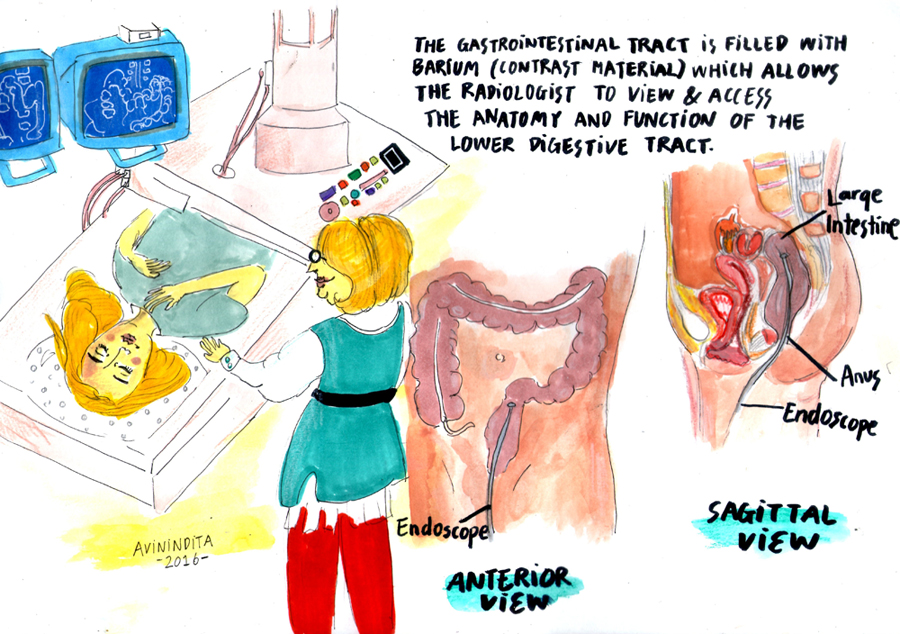 THE GASTROINTESTINAL TRACT iS FiLLED WiTH
BARiUM (CONTRAST MATERiAL) WHiCH ALLOWS
THE RADiOLOGiST TO ViEW & ACCESS
THE ANATOMY AND FUNCTiON OF THE
LOWER DiGESTiVE TRACT.
Large
Intestine
Anus
Endoscope
SAGiTTAL
ViEW
Endoscope
ANTERiOR
ViEW
AVININDITA
-2016-